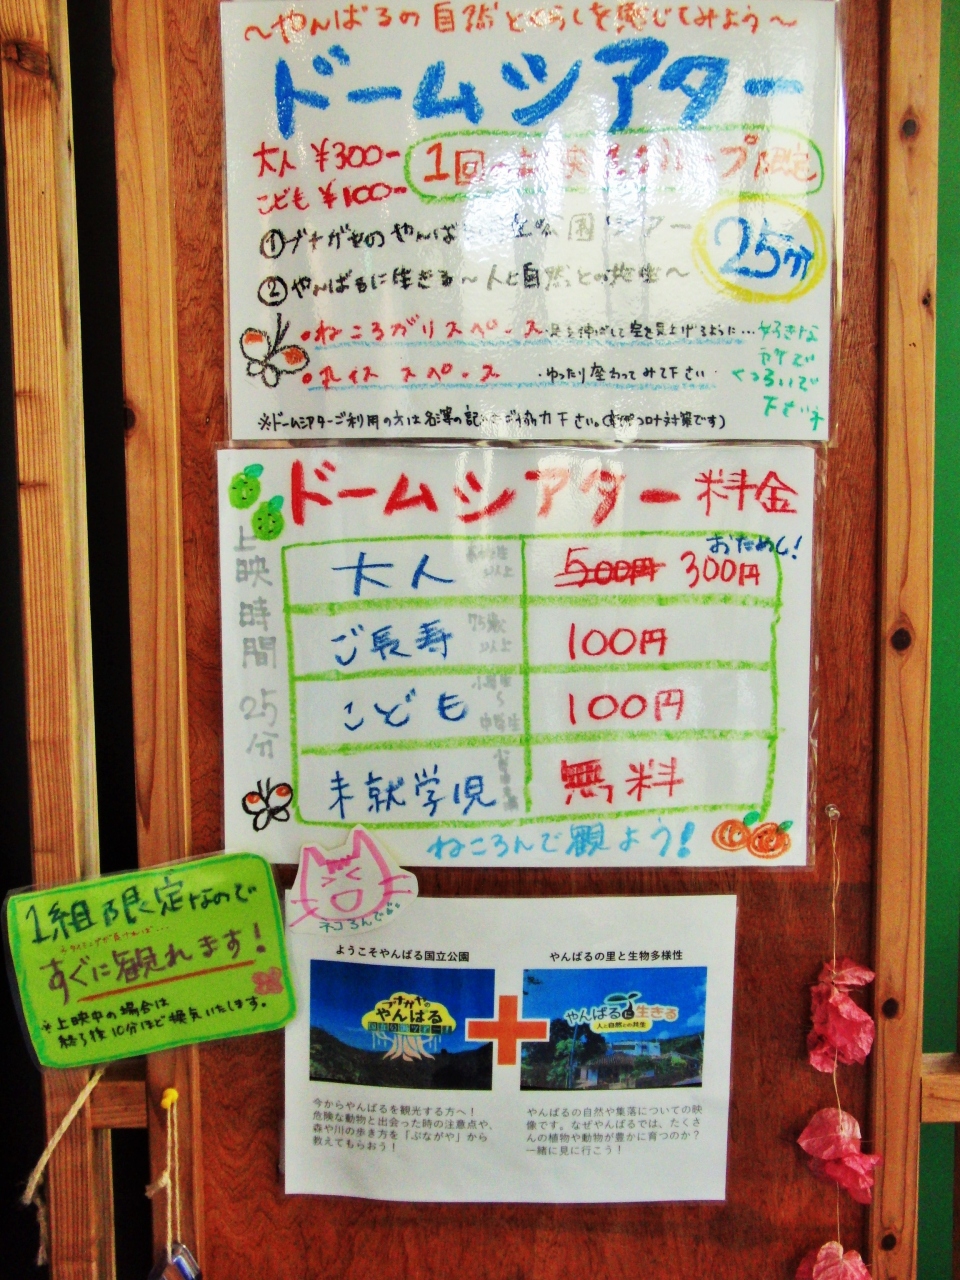 〜やんばるの自然とくらしを感じてみよう〜
ドームシアター
大人 ¥300-
こども ¥100-
1回 プ限定
①ブナガヤのやんばる 公園ツアー
25分
②やんばるに生きる〜人と自然との共生〜
・ねころがりスペース 足を伸ばして空を見上げるように…
・丸イススペース ・ゆったり座わってみて下さい
好きな
所で
くつろいで
下さいネ
※ドームシアターご利用の方は名簿の記 ご協力下さい。( コロナ対策です)
ドームシアター料金
上映時間 25分
大人 以上 500円 300円 おためし!
ご長寿 75歳以上 100円
こども 小学生〜中学生 100円
未就学児 無料
ねころんで観よう!
ネコろんでみ。
1組限定なので
すぐに観れます!
※上映中の場合は
終了後10分ほど換気いたします。
ようこそやんばる国立公園
ブナガヤの
やんばる
今からやんばるを観光する方へ!
危険な動物と出会った時の注意点や、
森や川の歩き方を「ぶながや」から
教えてもらおう!
やんばるの里と生物多様性
やんばるに生きる
人と自然との共生
やんばるの自然や集落についての映
像です。なぜやんばるでは、たくさ
んの植物や動物が豊かに育つのか?
一緒に見に行こう!